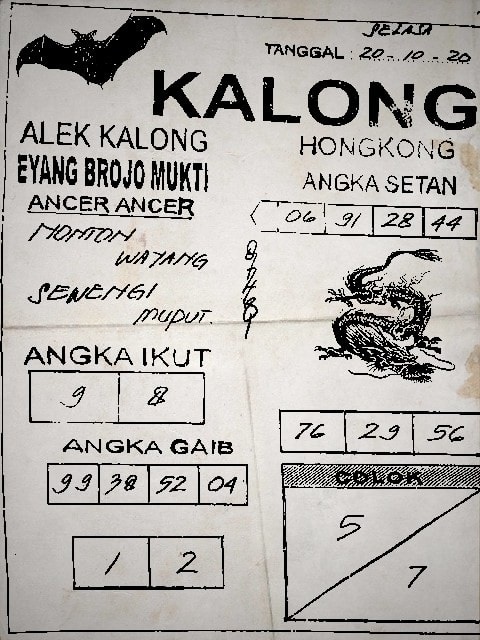 SELASA
TANGGAL : 20 - 10 - 20
KALONG
ALEK KALONG
EYANG BROJO MUKTI
ANCER ANCER
NONTON
WAYANG
SENENGI
MUPUT.
HONGKONG
ANGKA SETAN
06 91 28 44
ANGKA IKUT
9 8
ANGKA GAIB
99 38 52 04
1 2
76 29 56
COLOK
5
7